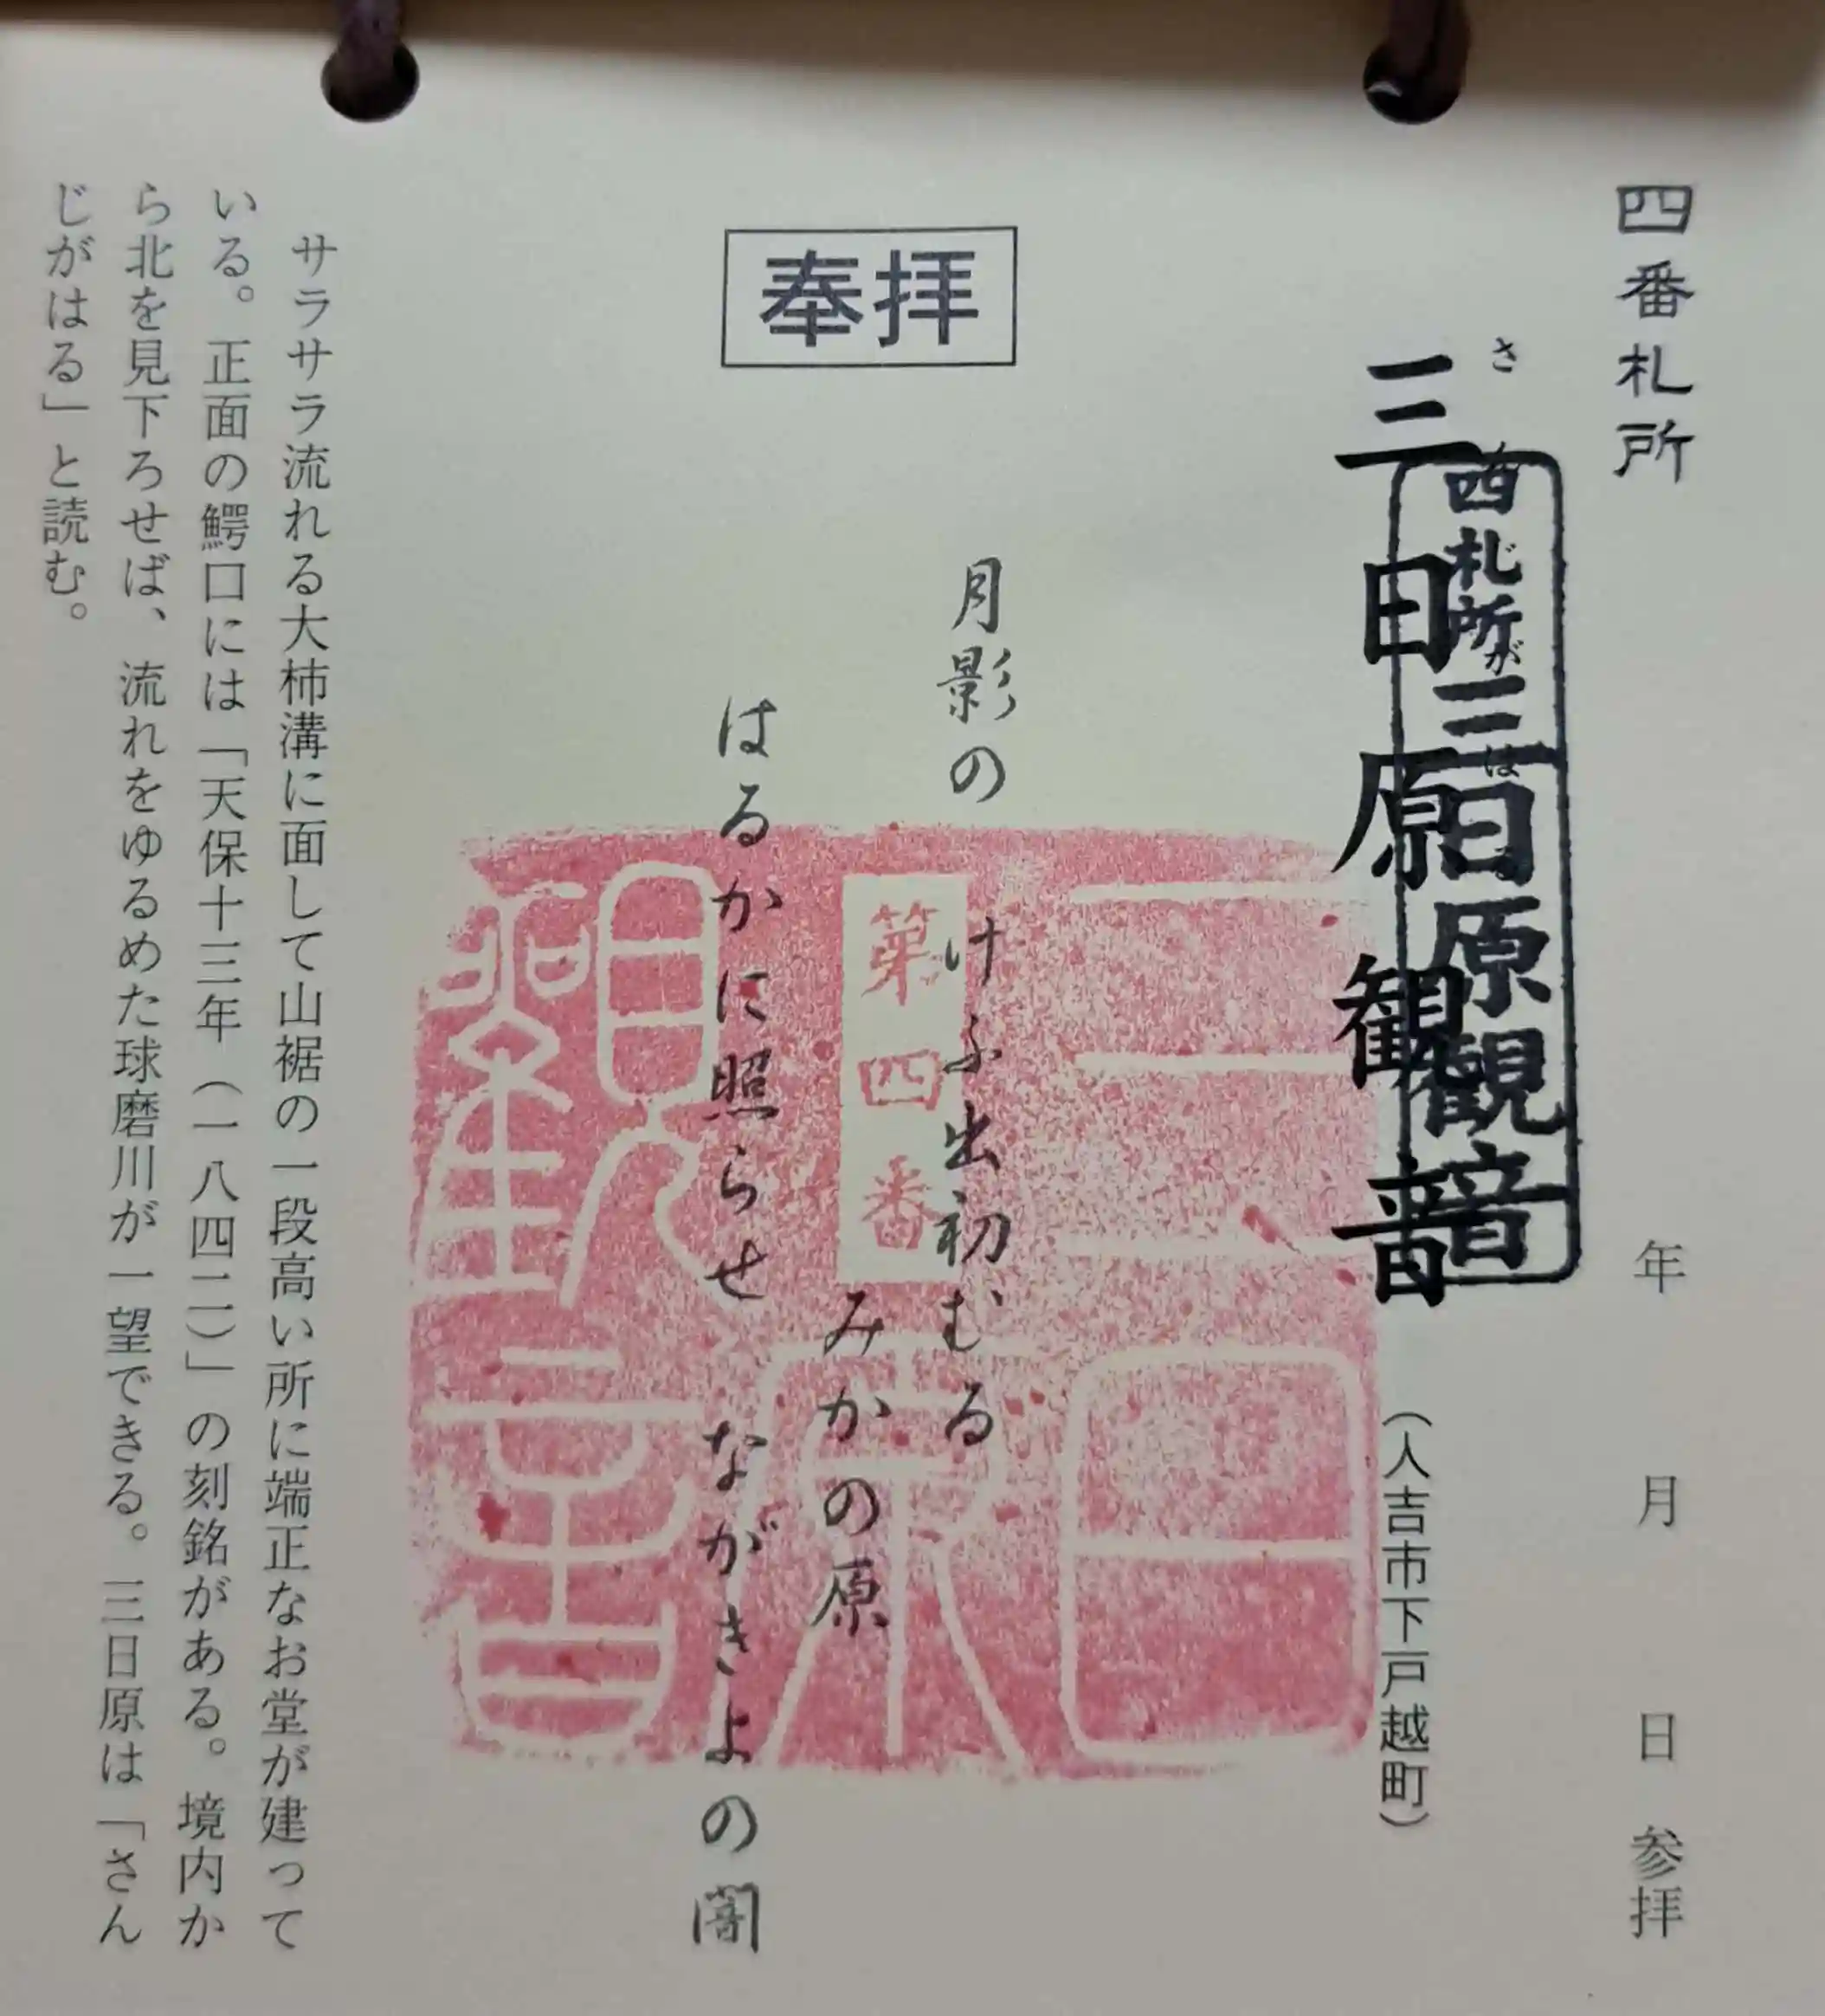 四番札所
年 月 日 参拝
四札所三日原観音
さんじがはる
三日原観音
(人吉市下戸越町)
奉拝
月影の けふ出初むる
みかの原
はるかに照らせ ながきよの闇
第四番
三日原観音
サラサラ流れる大柿溝に面して山裾の一段高い所に端正なお堂が建って
いる。正面の鰐口には「天保十三年(一八四二)」の刻銘がある。境内か
ら北を見下ろせば、流れをゆるめた球磨川が一望できる。三日原は「さん
じがはる」と読む。